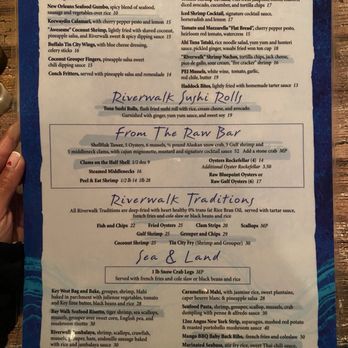 New Orleans Seafood Gumbo, spicy blend of seafood,
sausage and vegetables over rice 10
Keewaydin Calamari, with cherry pepper pesto and lemon 15
"Awesome" Coconut Shrimp, lightly fried with shaved coconut,
pineapple salsa, and Riverwalk sweet & spicy dipping sauce 15
Buffalo Tin City Wings, with blue cheese dressing,
celery sticks 16
Coconut Grouper Fingers, pineapple salsa sweet
chili dipping sauce 15
Conch Fritters, served with pineapple salsa and remoulade 14
diced avocado, cucumber, and tortilla chips 17
Iced Shrimp Cocktail, signature cocktail sauce,
horseradish and lemon 17
Tomato and Mozzarella "Flat Bread", cherry pepper pesto,
heirloom tomato, watercress 15
Ahi Tuna Tataki, rice noodle salad, yum yum and hunteri
sauce, pickled ginger, wasabi fried won ton cup 18
"Riverwalk" Shrimp Nachos, tortilla chips, jack cheese,
pico de gallo, sour cream, "fire cracker" shrimp 16
PEI Mussels, white wine, tomato, garlic,
and chili, butter 19
Haddock Bites, lightly fried with homemade tarter sauce 13
Riverwalk Sushi Rolls
Tuna Sushi Rolls, flash fried sushi roll with rice, cream cheese, and avocado.
Garnished with ginger, yum yum sauce, and sweet soy 19
From The Raw Bar
Shellfish Tower, 5 Oysters, 6 mussels, ½ pound Alaskan snow crab, 5 Gulf shrimp and
5 middleneck clams, with cajun mignonette, mustard and signature cocktail sauce 52 Add a stone crab MP
Clams on the Half Shell 1/2 doz 9
Steamed Middlenecks 16
Peel & Eat Shrimp 1/2 lb 14 lb 26
Oysters Rockefeller (4) 14
Additional Oyster Rockefeller 3.50
Raw Bluepoint Oysters or
Raw Gulf Oysters (6) 17
Riverwalk Traditions
All Riverwalk Traditions are deep-fried with heart healthy 0% trans fat Rice Bran Oil, served with tartar sauce,
french fries and cole slaw or black beans and rice
Fish and Chips 22 Fried Oysters 25 Clam Strips 20 Scallops MP
Gulf Shrimp 25 Grouper and Chips 29
Coconut Shrimp 25 Tin City Fry (Shrimp and Grouper) 30
Sea & Land
1 lb Snow Crab Legs MP
Served with french fries and cole slaw or black beans and rice
Key West Bag and Bake, grouper, shrimp, Mahi
baked in parchment with julienne vegetables, tomato
and Key lime butter, black beans and rice 28
Bay Walk Seafood Risotto, tiger shrimp, sea scallops,
mussels, grouper over sweet corn, English pea, and
mushroom risotto 30
Riverwalk Jambalaya, shrimp, scallops, crawfish,
mussels, grouper, ham, andouille sausage baked
with rice and jambalaya sauce 30
Caramelized Mahi, with jasmine rice, sweet plantains,
caper beurre blanc & pineapple salsa 28
Seafood Pasta, shrimp, grouper, scallop, mussels, crab
dumpling with penne & alfredo sauce 31
12oz Angus New York Strip, asparagus, mashed red potato
& roasted portobello mushroom sauce 40
Mango BBQ Baby Back Ribs, french fries, & coleslaw 30
Marinated Seabass, stir fry rice, sweet Thai chili sauce,